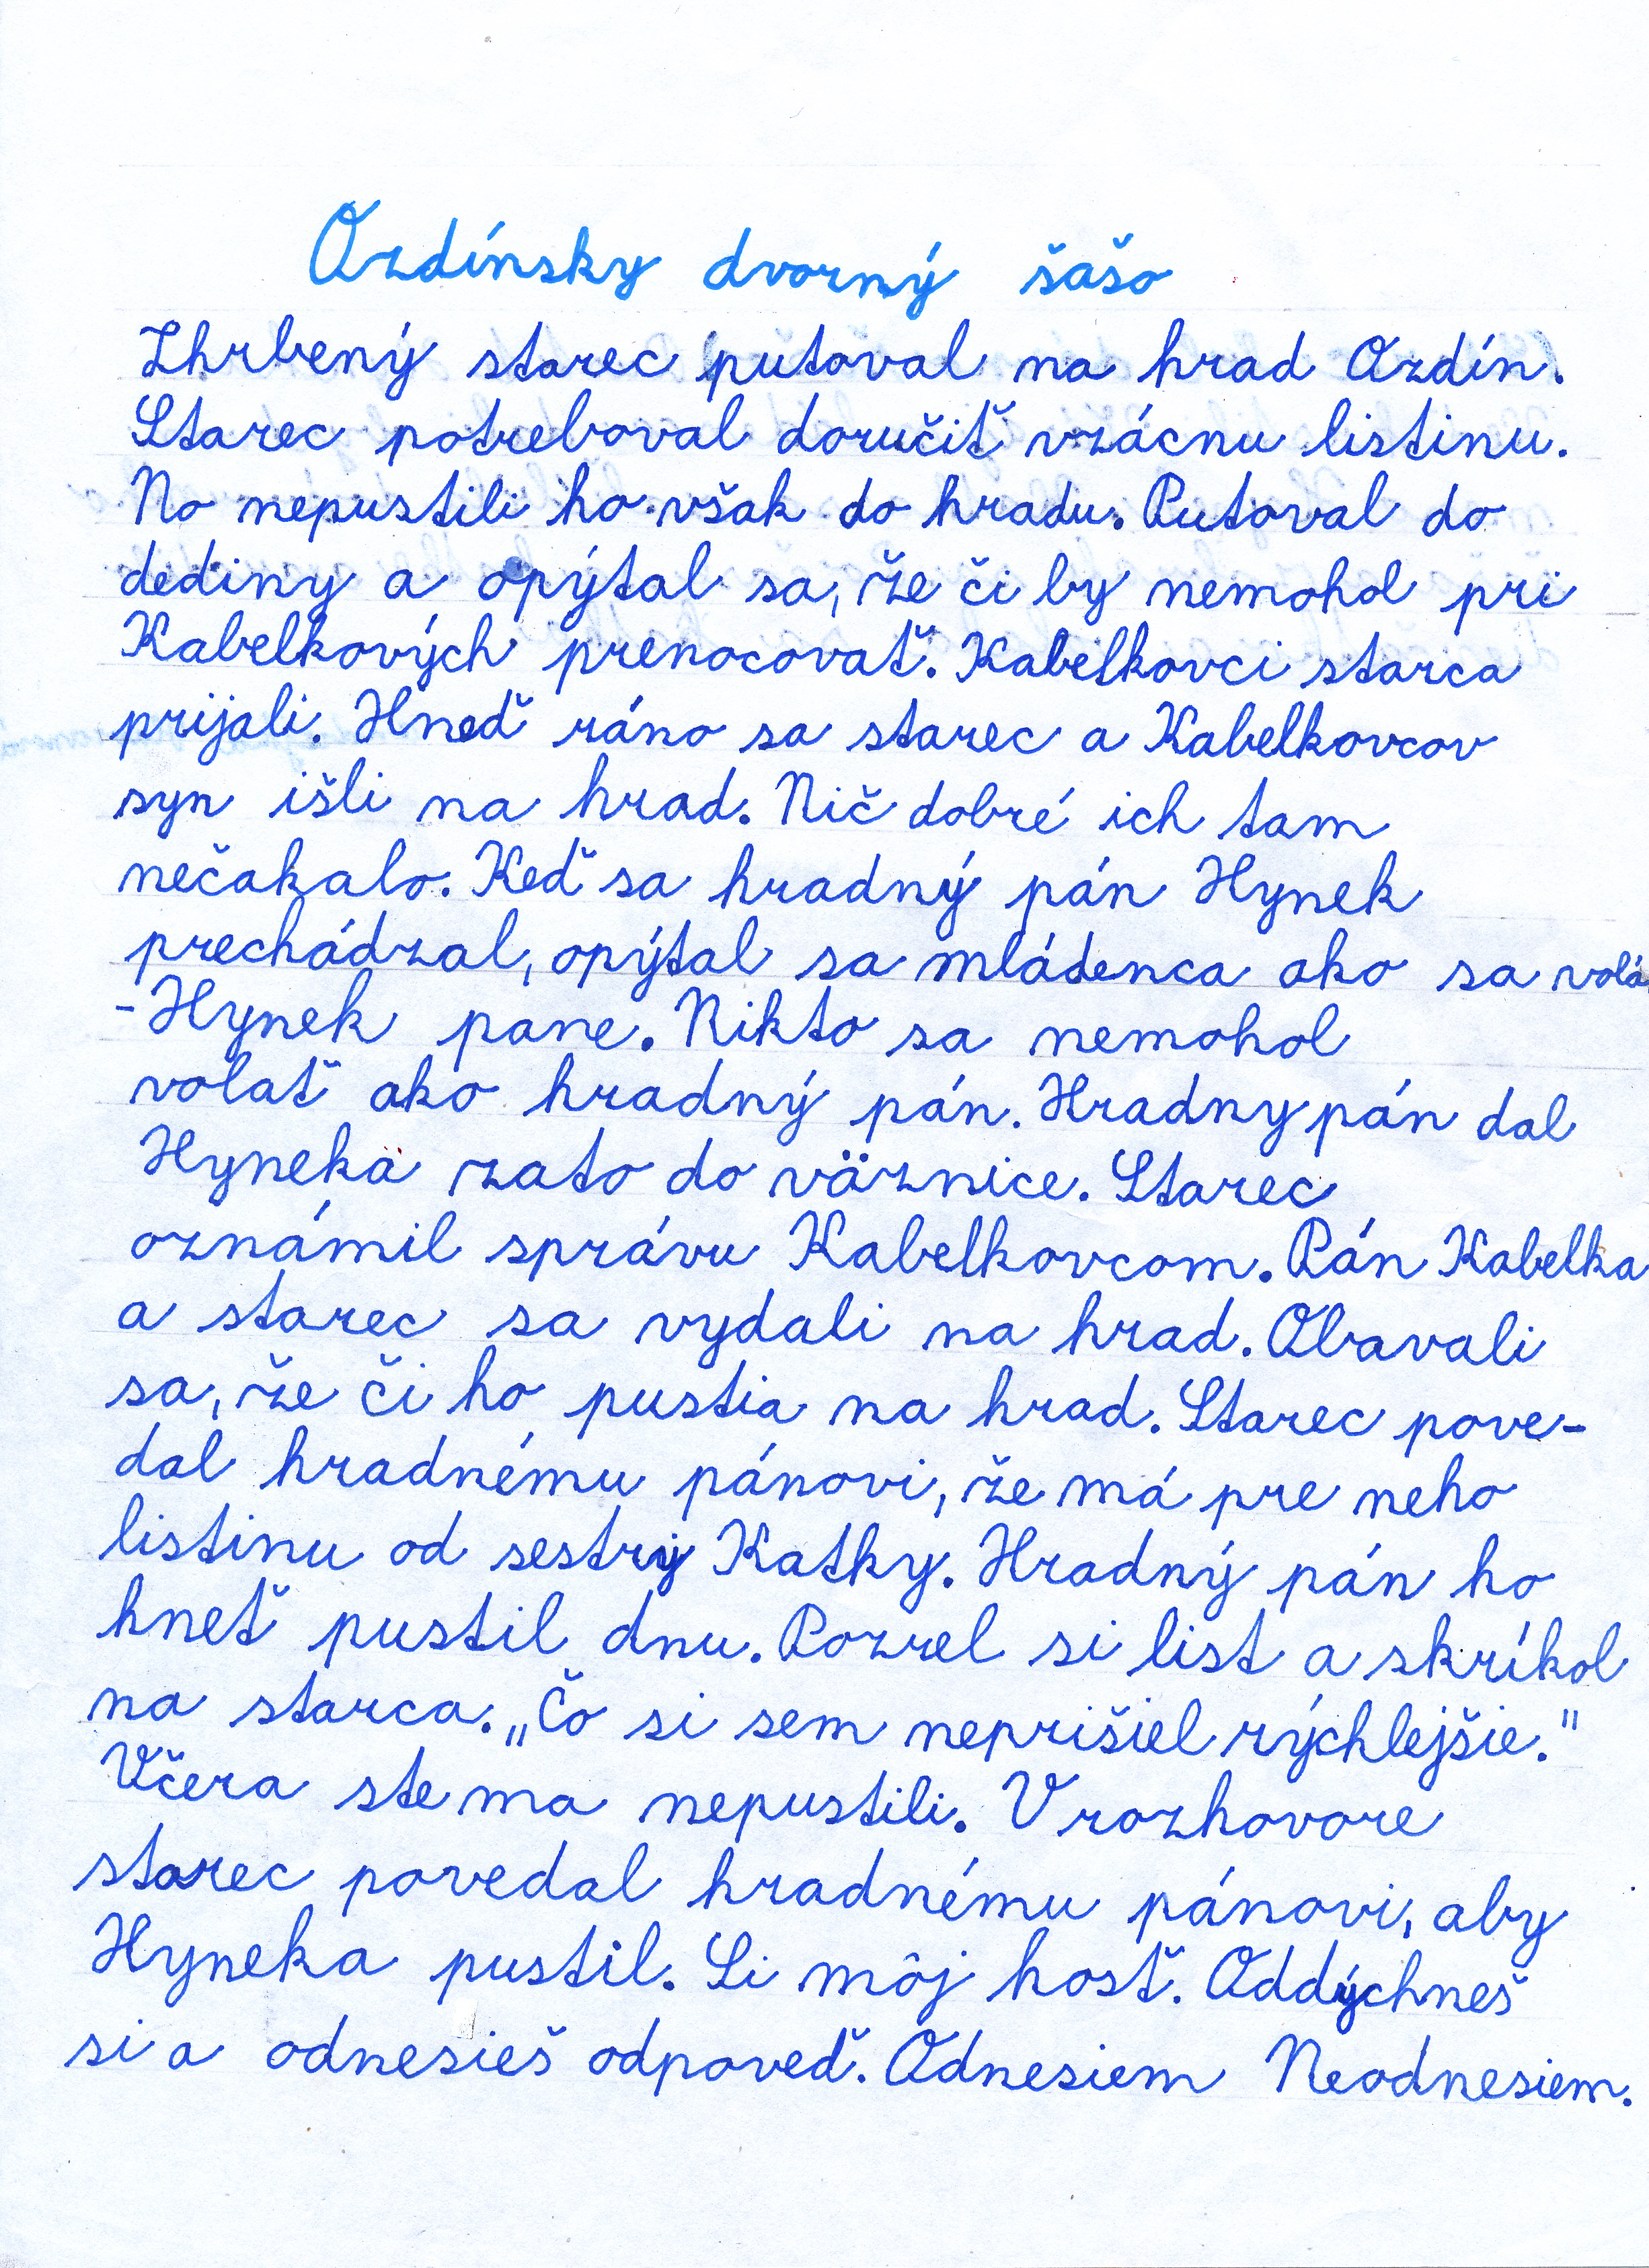 Ozdínsky dvorný šašo
Zhrbený starec putoval na hrad Ozdín.
Starec potreboval doručiť vzácnu listinu.
No nepustili ho však do hradu. Putoval do
dediny a opýtal sa, že či by nemohol pri
Kabelkových prenocovať. Kabelkovci starca
prijali. Hneď ráno sa starec a Kabelkovcov
syn išli na hrad. Nič dobré ich tam
nečakalo. Keď sa hradný pán Hynek
prechádzal, opýtal sa mládenca ako sa volá.
-Hynek pane. Nikto sa nemohol
volať ako hradný pán. Hradny pán dal
Hyneka zato do väznice. Starec
oznámil správu Kabelkovcom. Pán Kabelka
a starec sa vydali na hrad. Obavali
sa, že či ho pustia na hrad. Starec pove-
dal hradnému pánovi, že má pre neho
listinu od sestry Katky. Hradný pán ho
hneť pustil dnu. Pozrel si list a skríkol
na starca. „Čo si sem neprišiel rýchlejšie."
Včera ste ma nepustili. V rozhovore
starec povedal hradnému pánovi, aby
Hyneka pustil. Si môj hosť. Oddýchneš
si a odnesieš odpoveď. Odnesiem Neodnesiem.